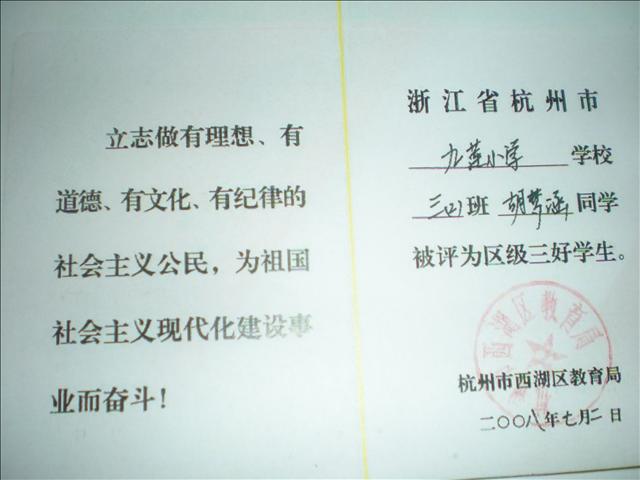 立志做有理想、有
道德、有文化、有纪律的
社会主义公民，为祖国
社会主义现代化建设事
业而奋斗！
浙江省杭州市
九莲小学学校
三(2)班 胡梦涵同学
被评为区级三好学生。
杭州市西湖区教育局
杭州市西湖区教育局
二〇〇八年七月二日